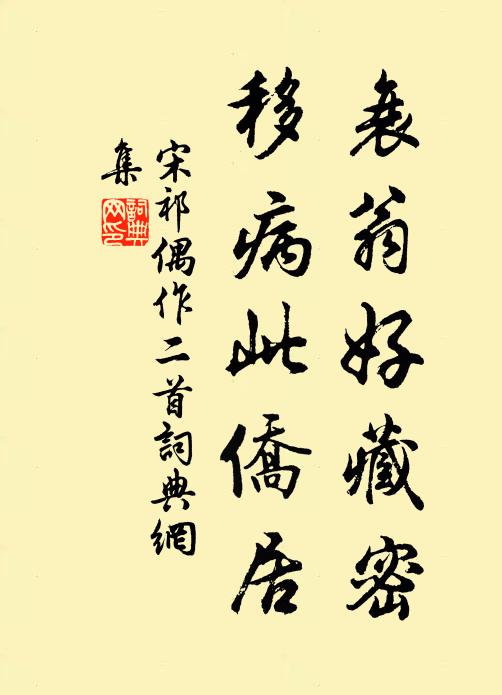 衰翁好藏密
移病此僑居
宋祁偶作二首詞典網
集
詞典
网印